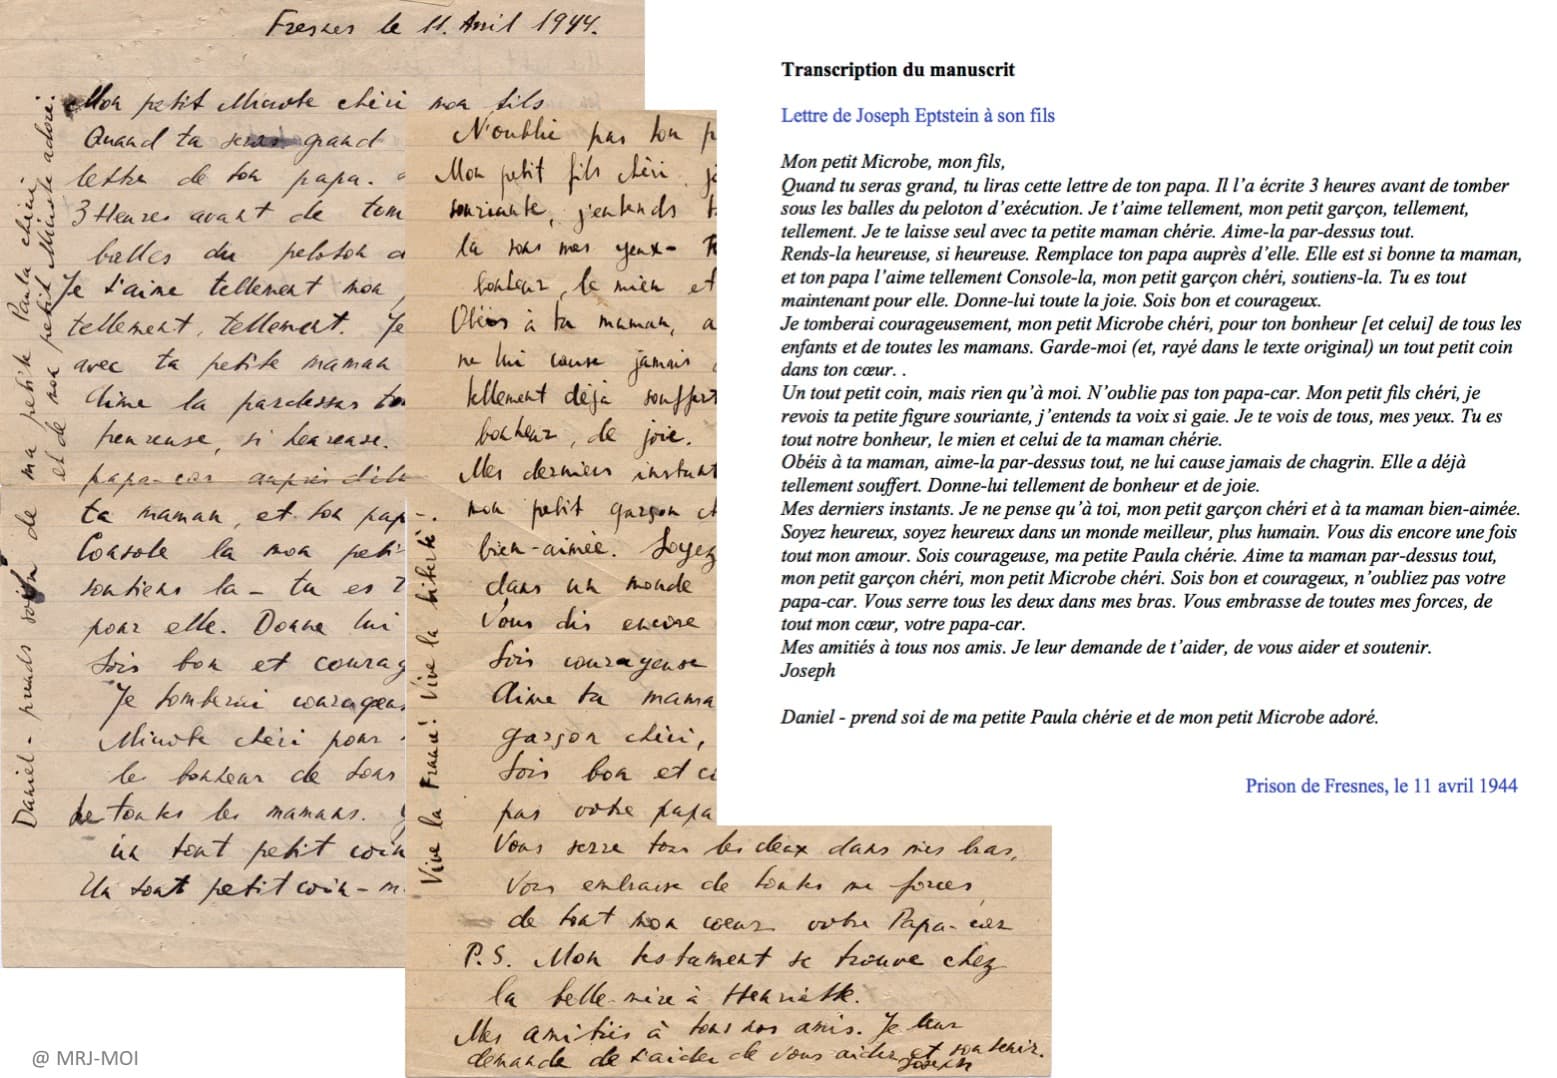 Fresnes le 11. Avril 1944.
Mon petit Microbe chéri mon fils
Quand tu seras grand
lettre de ton papa.
3 Heures avant de tom
balles du peloton d
Je t'aime tellement mon
tellement, tellement. Je
avec ta petite maman
Aime la pardessus to
heureuse, si heureuse.
papa-car auprès d'elle
ta maman, et ton pap
Console la mon peti
soutiens la - tu es t
pour elle. Donne lui
Sois bon et courag
Je tomberai courageus
Microbe chéri pour
le bonheur de tous
de toutes les mamans.
un tout petit coin
Un tout petit coin - m
Daniel - prends soin de ma petite Paula chérie
et de mon petit Microbe adoré.
N'oublie pas ton p
Mon petit fils chéri. je
souriante, j'entends t
la sous mes yeux - T
bonheur, le mien et
Obéis à ta maman, a
ne lui cause jamais
tellement déjà souffert
bonheur, de joie.
Mes derniers instant
mon petit garçon ch
bien-aimée. Soyez
dans un monde
Vous dis encore
Sois courageuse
Aime ta mama
garçon chéri,
Sois bon et co
pas votre papa
Vous serre tous les deux dans mes bras,
Vous embrasse de toutes me forces
de tout mon coeur votre Papa-car
P.S. Mon testament se trouve chez
la belle-mère à Henriette.
Mes amitiés à tous nos amis. Je leur
demande de t'aider de vous aider et soutenir.
Joseph
Vive la France! Vive la liberté!
Transcription du manuscrit
Lettre de Joseph Eptstein à son fils
Mon petit Microbe, mon fils,
Quand tu seras grand, tu liras cette lettre de ton papa. Il l'a écrite 3 heures avant de tomber
sous les balles du peloton d'exécution. Je t'aime tellement, mon petit garçon, tellement,
tellement. Je te laisse seul avec ta petite maman chérie. Aime-la par-dessus tout.
Rends-la heureuse, si heureuse. Remplace ton papa auprès d'elle. Elle est si bonne ta maman,
et ton papa l'aime tellement Console-la, mon petit garçon chéri, soutiens-la. Tu es tout
maintenant pour elle. Donne-lui toute la joie. Sois bon et courageux.
Je tomberai courageusement, mon petit Microbe chéri, pour ton bonheur [et celui] de tous les
enfants et de toutes les mamans. Garde-moi (et, rayé dans le texte original) un tout petit coin
dans ton cœur. .
Un tout petit coin, mais rien qu'à moi. N'oublie pas ton papa-car. Mon petit fils chéri, je
revois ta petite figure souriante, j'entends ta voix si gaie. Je te vois de tous, mes yeux. Tu es
tout notre bonheur, le mien et celui de ta maman chérie.
Obéis à ta maman, aime-la par-dessus tout, ne lui cause jamais de chagrin. Elle a déjà
tellement souffert. Donne-lui tellement de bonheur et de joie.
Mes derniers instants. Je ne pense qu'à toi, mon petit garçon chéri et à ta maman bien-aimée.
Soyez heureux, soyez heureux dans un monde meilleur, plus humain. Vous dis encore une fois
tout mon amour. Sois courageuse, ma petite Paula chérie. Aime ta maman par-dessus tout,
mon petit garçon chéri, mon petit Microbe chéri. Sois bon et courageux, n'oubliez pas votre
papa-car. Vous serre tous les deux dans mes bras. Vous embrasse de toutes mes forces, de
tout mon cœur, votre papa-car.
Mes amitiés à tous nos amis. Je leur demande de t'aider, de vous aider et soutenir.
Joseph
Daniel - prend soi de ma petite Paula chérie et de mon petit Microbe adoré.
Prison de Fresnes, le 11 avril 1944
@ MRJ-MOI